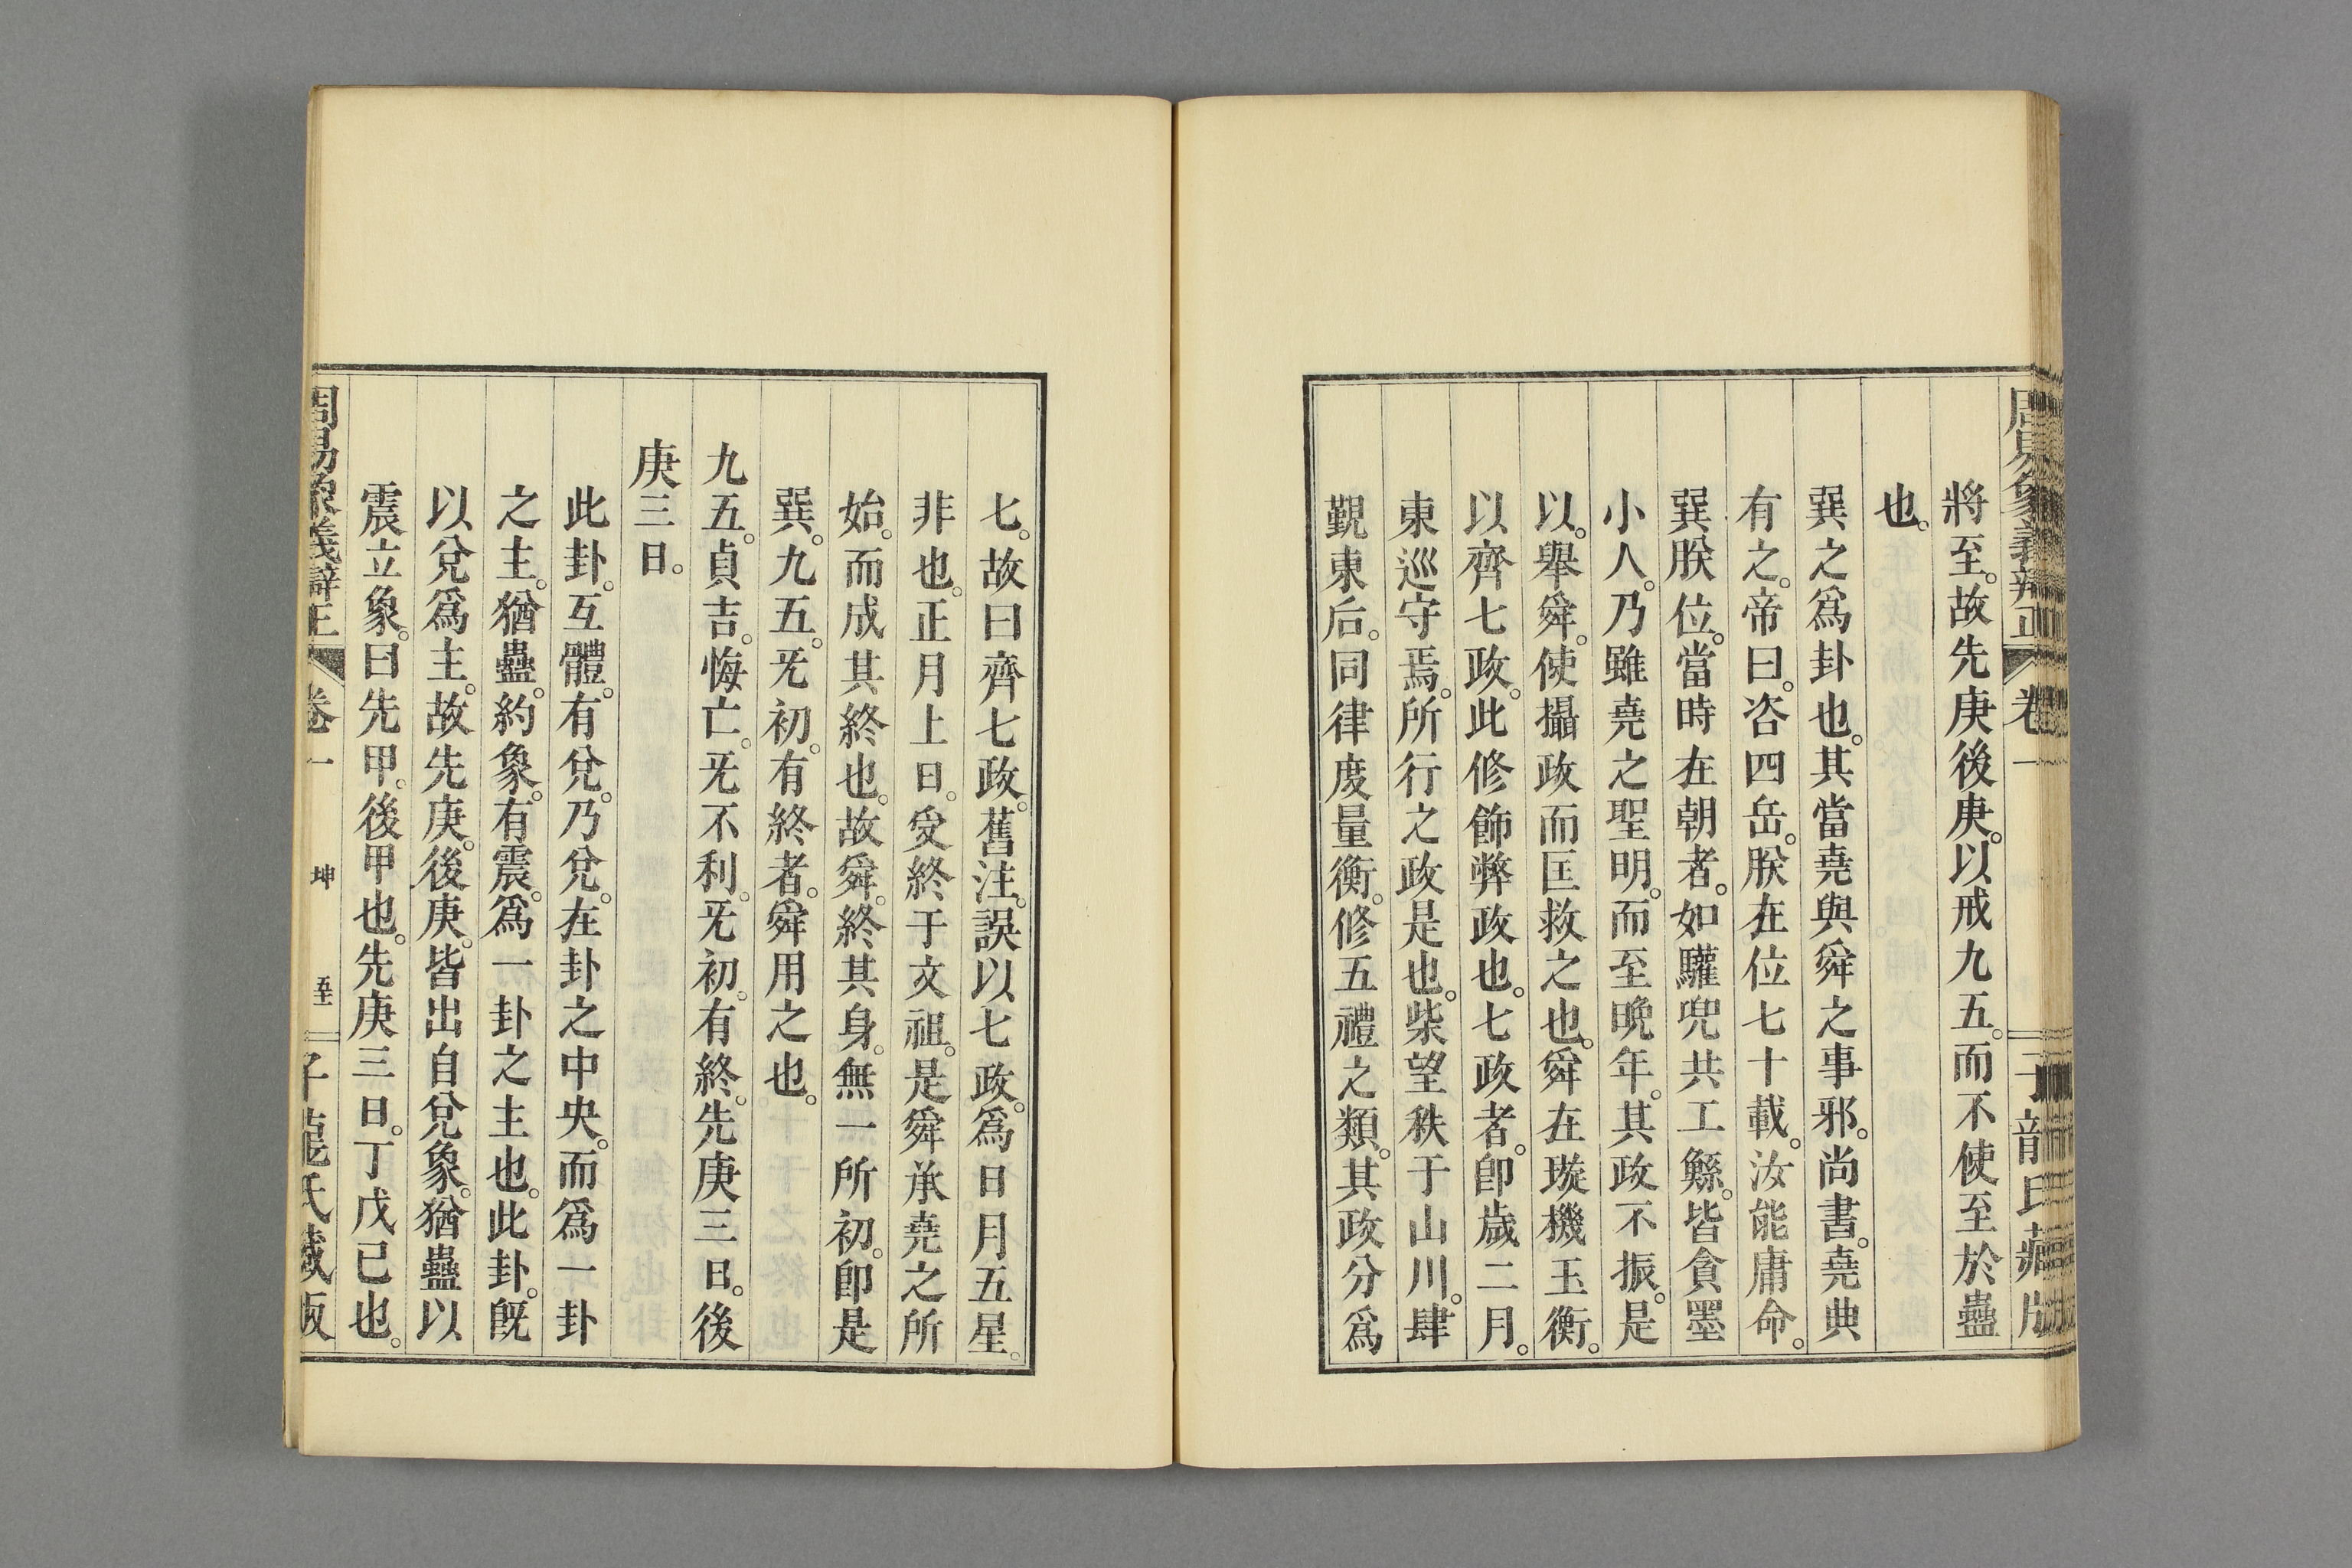 周易象義辨正 卷一 子龍氏藏版
將至。故先庚後庚。以戒九五。而不使至於蠱
也。
巽之爲卦也。其當堯與舜之事邪。尚書。堯典
有之。帝曰。咨四岳。朕在位七十載。汝能庸命。
巽朕位。當時在朝者。如驩兜共工鯀。皆貪墨
小人。乃雖堯之聖明。而至晩年。其政不振。是
以。舉舜。使攝政而匡救之也。舜在璇機玉衡。
以齊七政。此修飾弊政也。七政者。卽歲二月。
東巡守焉。所行之政是也。柴望秩于山川。肆
覲東后。同律度量衡。修五禮之類。其政分爲
七。故曰齊七政。舊注。誤以七政。爲日月五星。
非也。正月上日。受終于文祖。是舜承堯之所
始。而成其終也。故舜。終其身。無一所初。卽是
巽。九五。旡初。有終者。舜用之也。
九五。貞吉。悔亡。旡不利。旡初。有終。先庚三日。後
庚三日。
此卦。互體。有兌。乃兌。在卦之中央。而爲一卦
之主。猶蠱。約象。有震。爲一卦之主也。此卦。旣
以兌爲主。故先庚。後庚。皆出自兌象。猶蠱以
震立象。曰先甲。後甲也。先庚三日。丁戊己也。
周易象義辯正 卷一 坤 子龍氏藏版